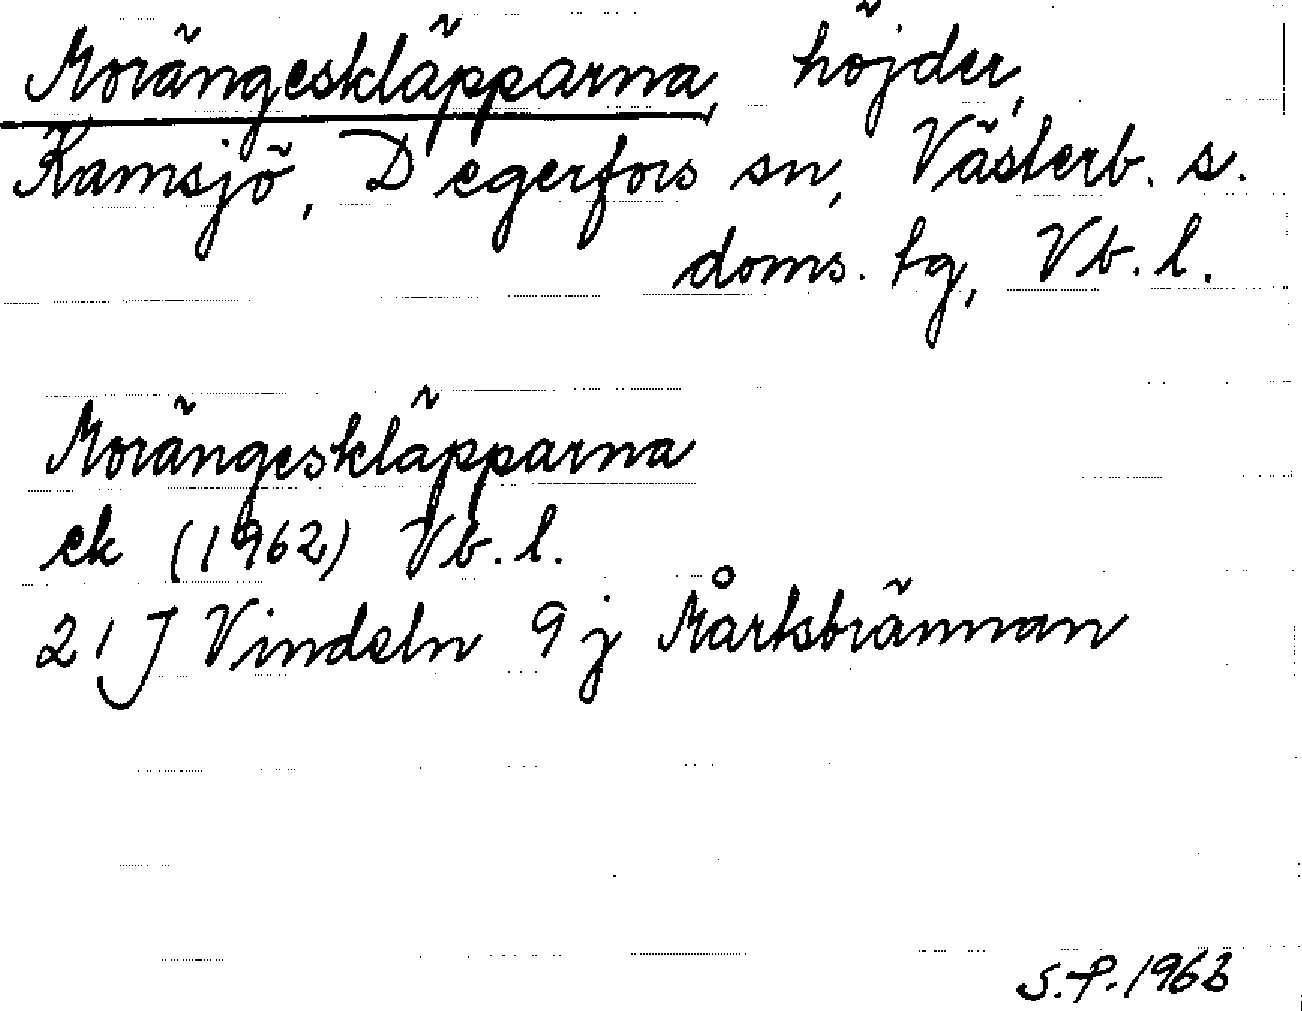 Morängeskläpparna, höjder,
Kamsjö, Degerfors sn, Västerb. s.
doms. tg, Vb. l.
Morängeskläpparna
ek (1962) Vb. l.
21 J Vindeln 9 j Mårtsbrännan
S.P. 1963